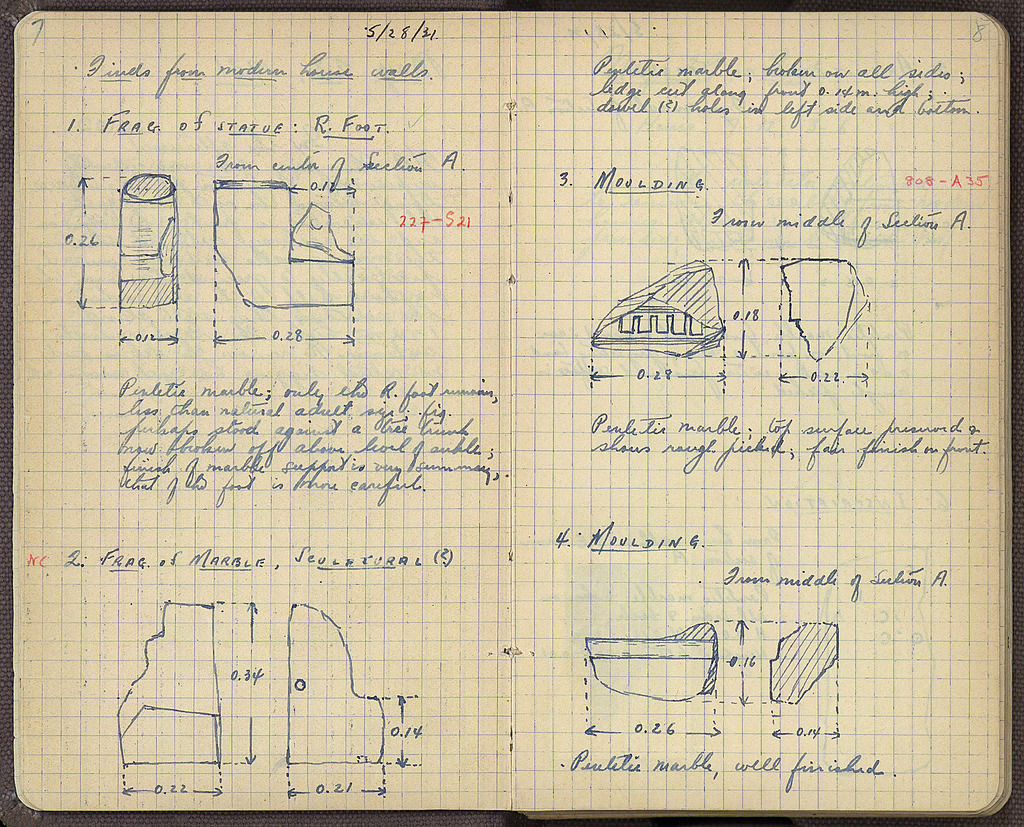 7
5/28/31.
Finds from modern house walls.
1. FRAG. OF STATUE: R. FOOT.
From center of Section A.
0.12
227-S21
0.26
0.12
0.28
Pentelic marble; only the R. foot remains,
less than natural adult size; fig.
perhaps stood against a tree trunk
now broken off above level of ankle;
finish of marble support is very summary,
that of the foot is more careful.
NC 2. FRAG. OF MARBLE, SCULPTURAL (?)
0.34
0.14
0.22
0.21
8
Pentelic marble; broken on all sides;
ledge cut along front 0.14 m. high;
dowel (?) holes in left side and bottom.
3. MOULDING.
808-A35
From middle of Section A.
0.18
0.28
0.22
Pentelic marble; top surface preserved &
shows rough picked; fair finish on front.
4. MOULDING.
From middle of Section A.
0.16
0.26
0.14
Pentelic marble, well finished.